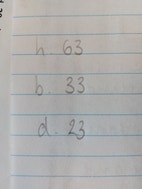 h. 63
b. 33
d. 23